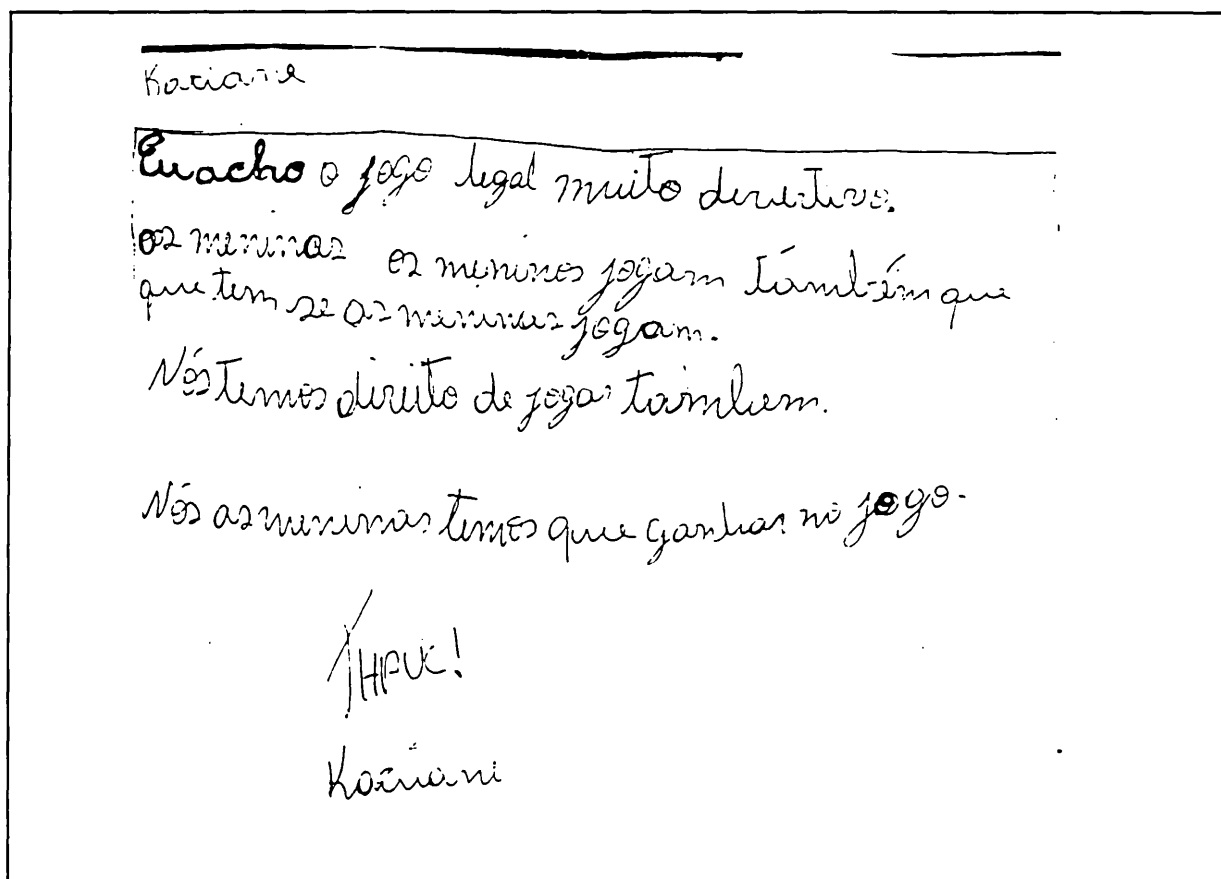 Katiane
Eu acho o jogo legal muito devertivo.
as meninas os meninos jogam também que
que tem se as meninas jogam.
Nós temos direito de jogar tambem.
Nós as meninas temos que ganhar no jogo.
Katiane